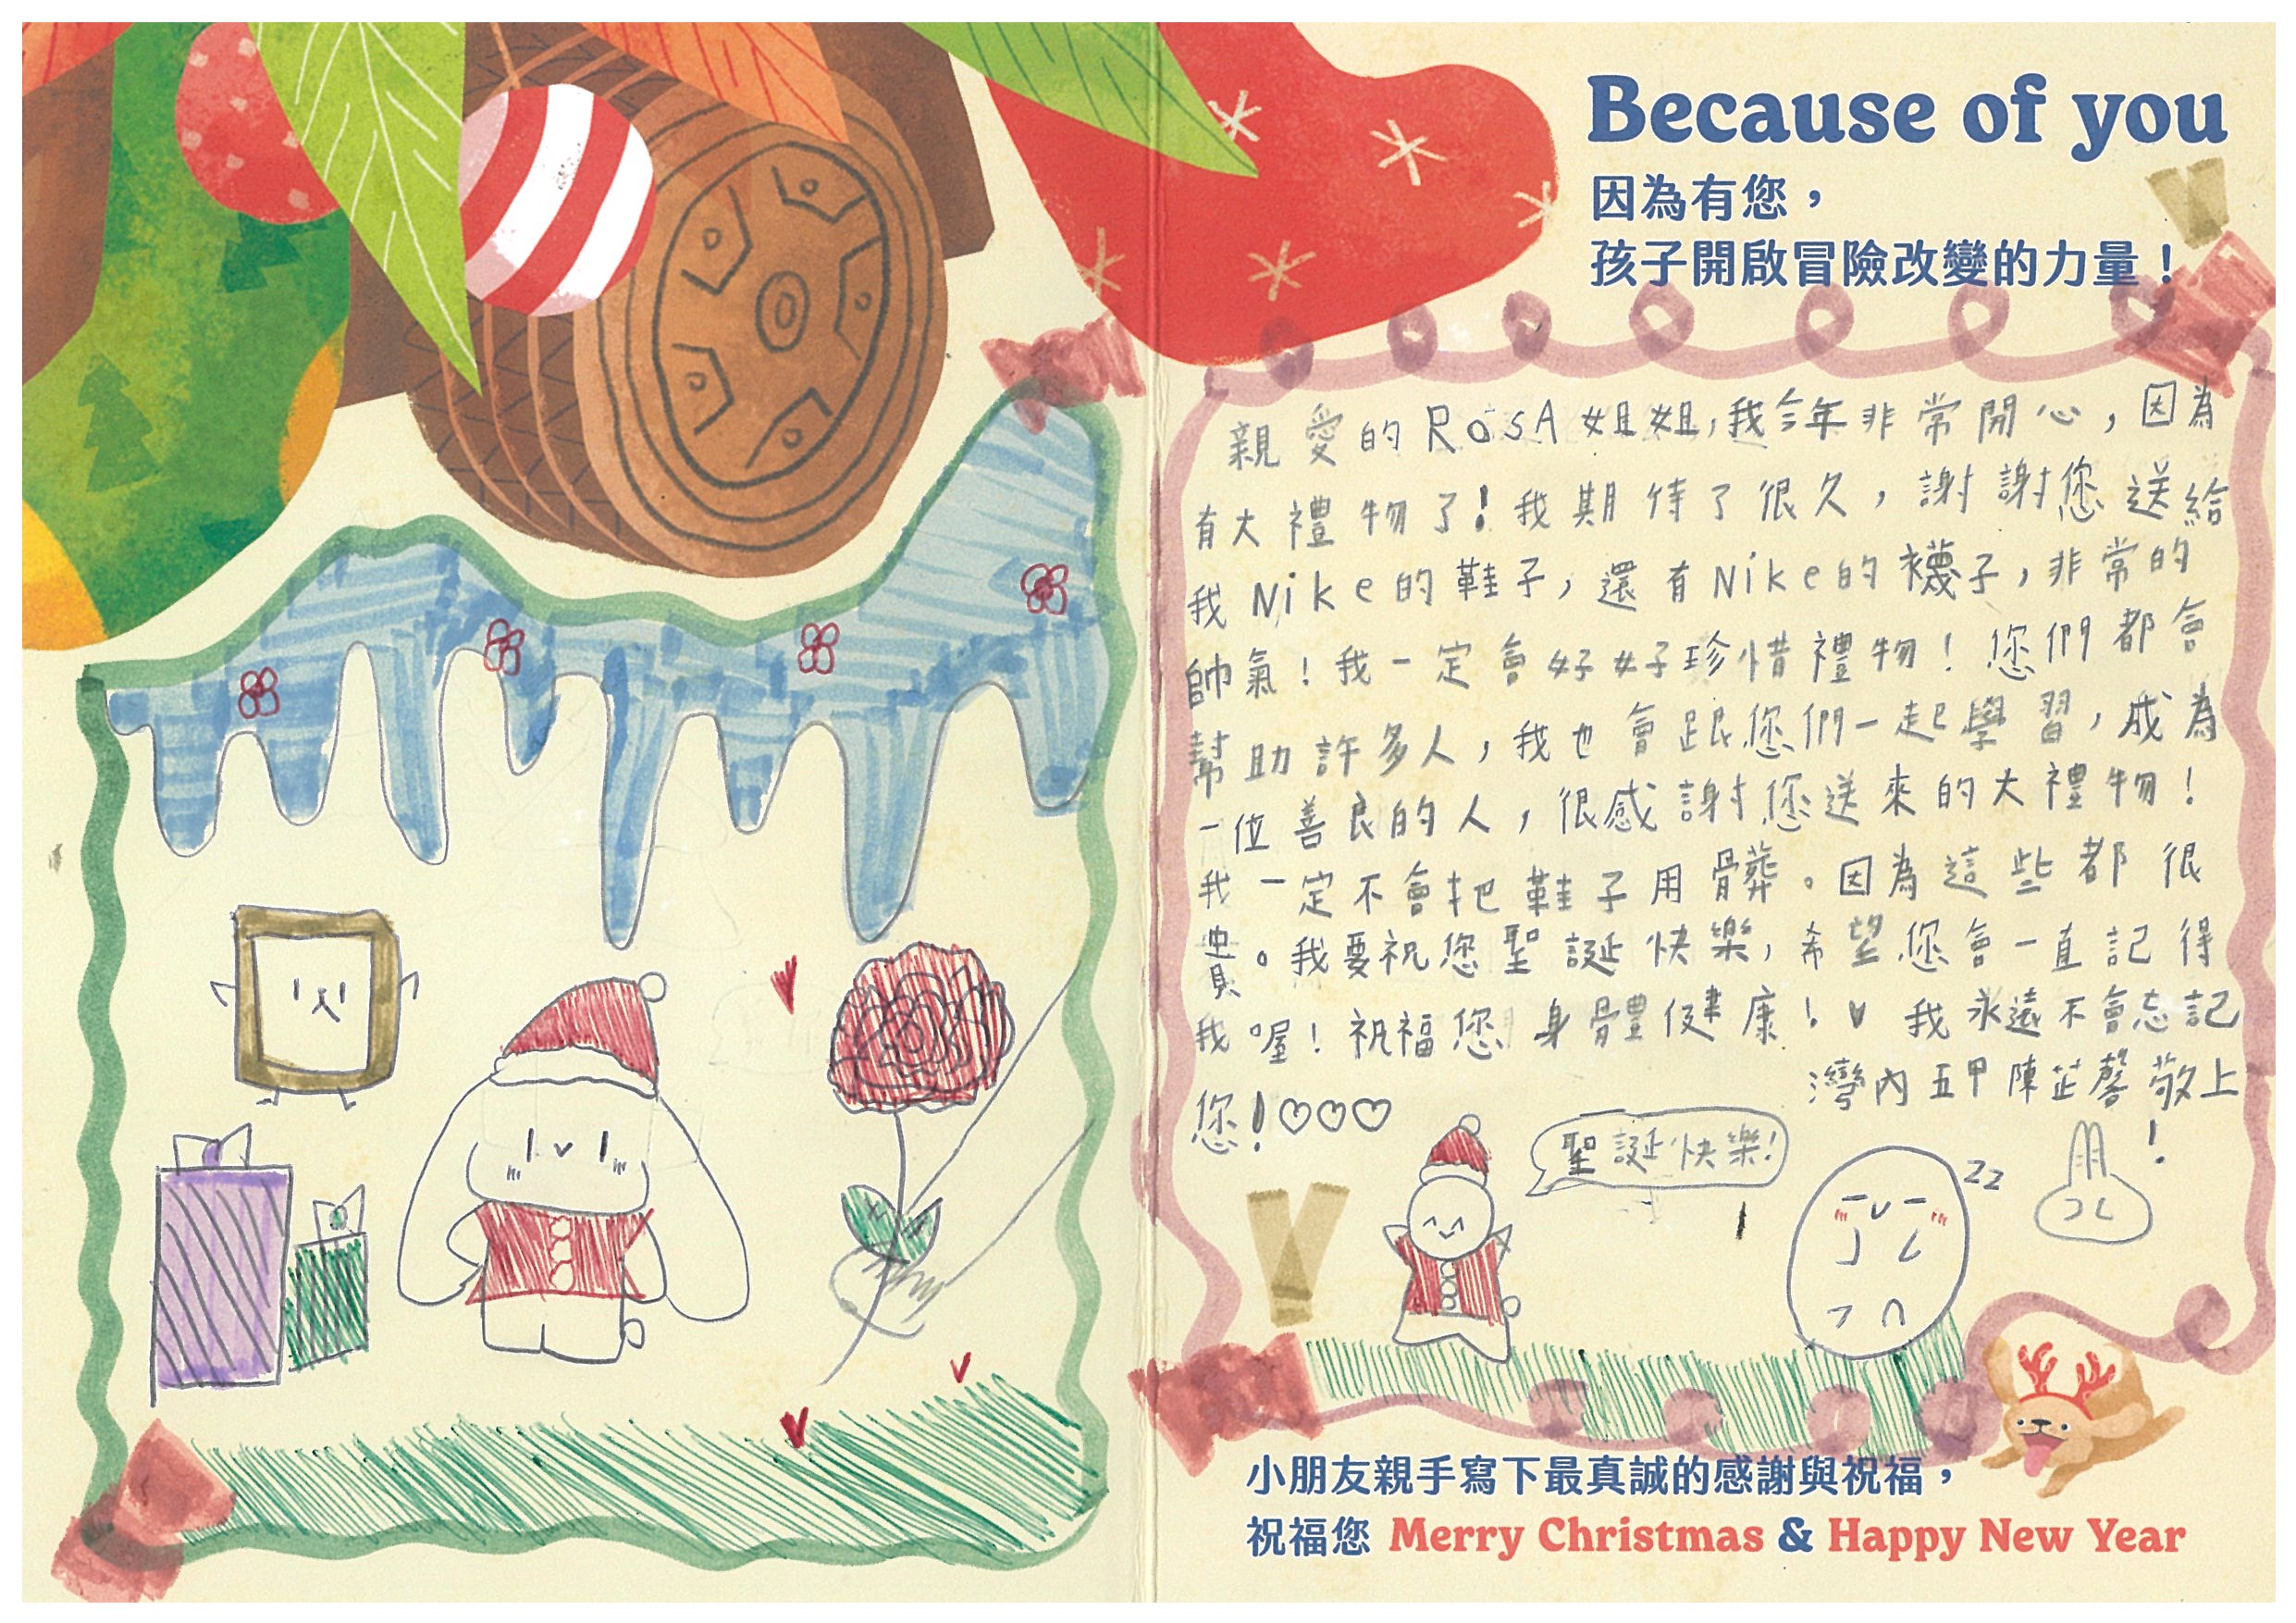 Because of you
因為有您，
孩子開啟冒險改變的力量！
親愛的RosA姐姐,我今年非常開心，因為
有大禮物了！我期待了很久，謝謝您送給
我Nike的鞋子，還有Nike的襪子，非常的
帥氣！我一定會好好珍惜禮物！您們都會
幫助許多人，我也會跟您們一起學習，成為
一位善良的人，很感謝您送來的大禮物！
我一定不會把鞋子用髒。因為這些都很
貴。我要祝您聖誕快樂，希望您會一直記得
我喔！祝福您身體健康！♥ 我永遠不會忘記
您！♡♡♡
灣內五甲陳芷馨敬上！
聖誕快樂！
zz
小朋友親手寫下最真誠的感謝與祝福，
祝福您 Merry Christmas & Happy New Year